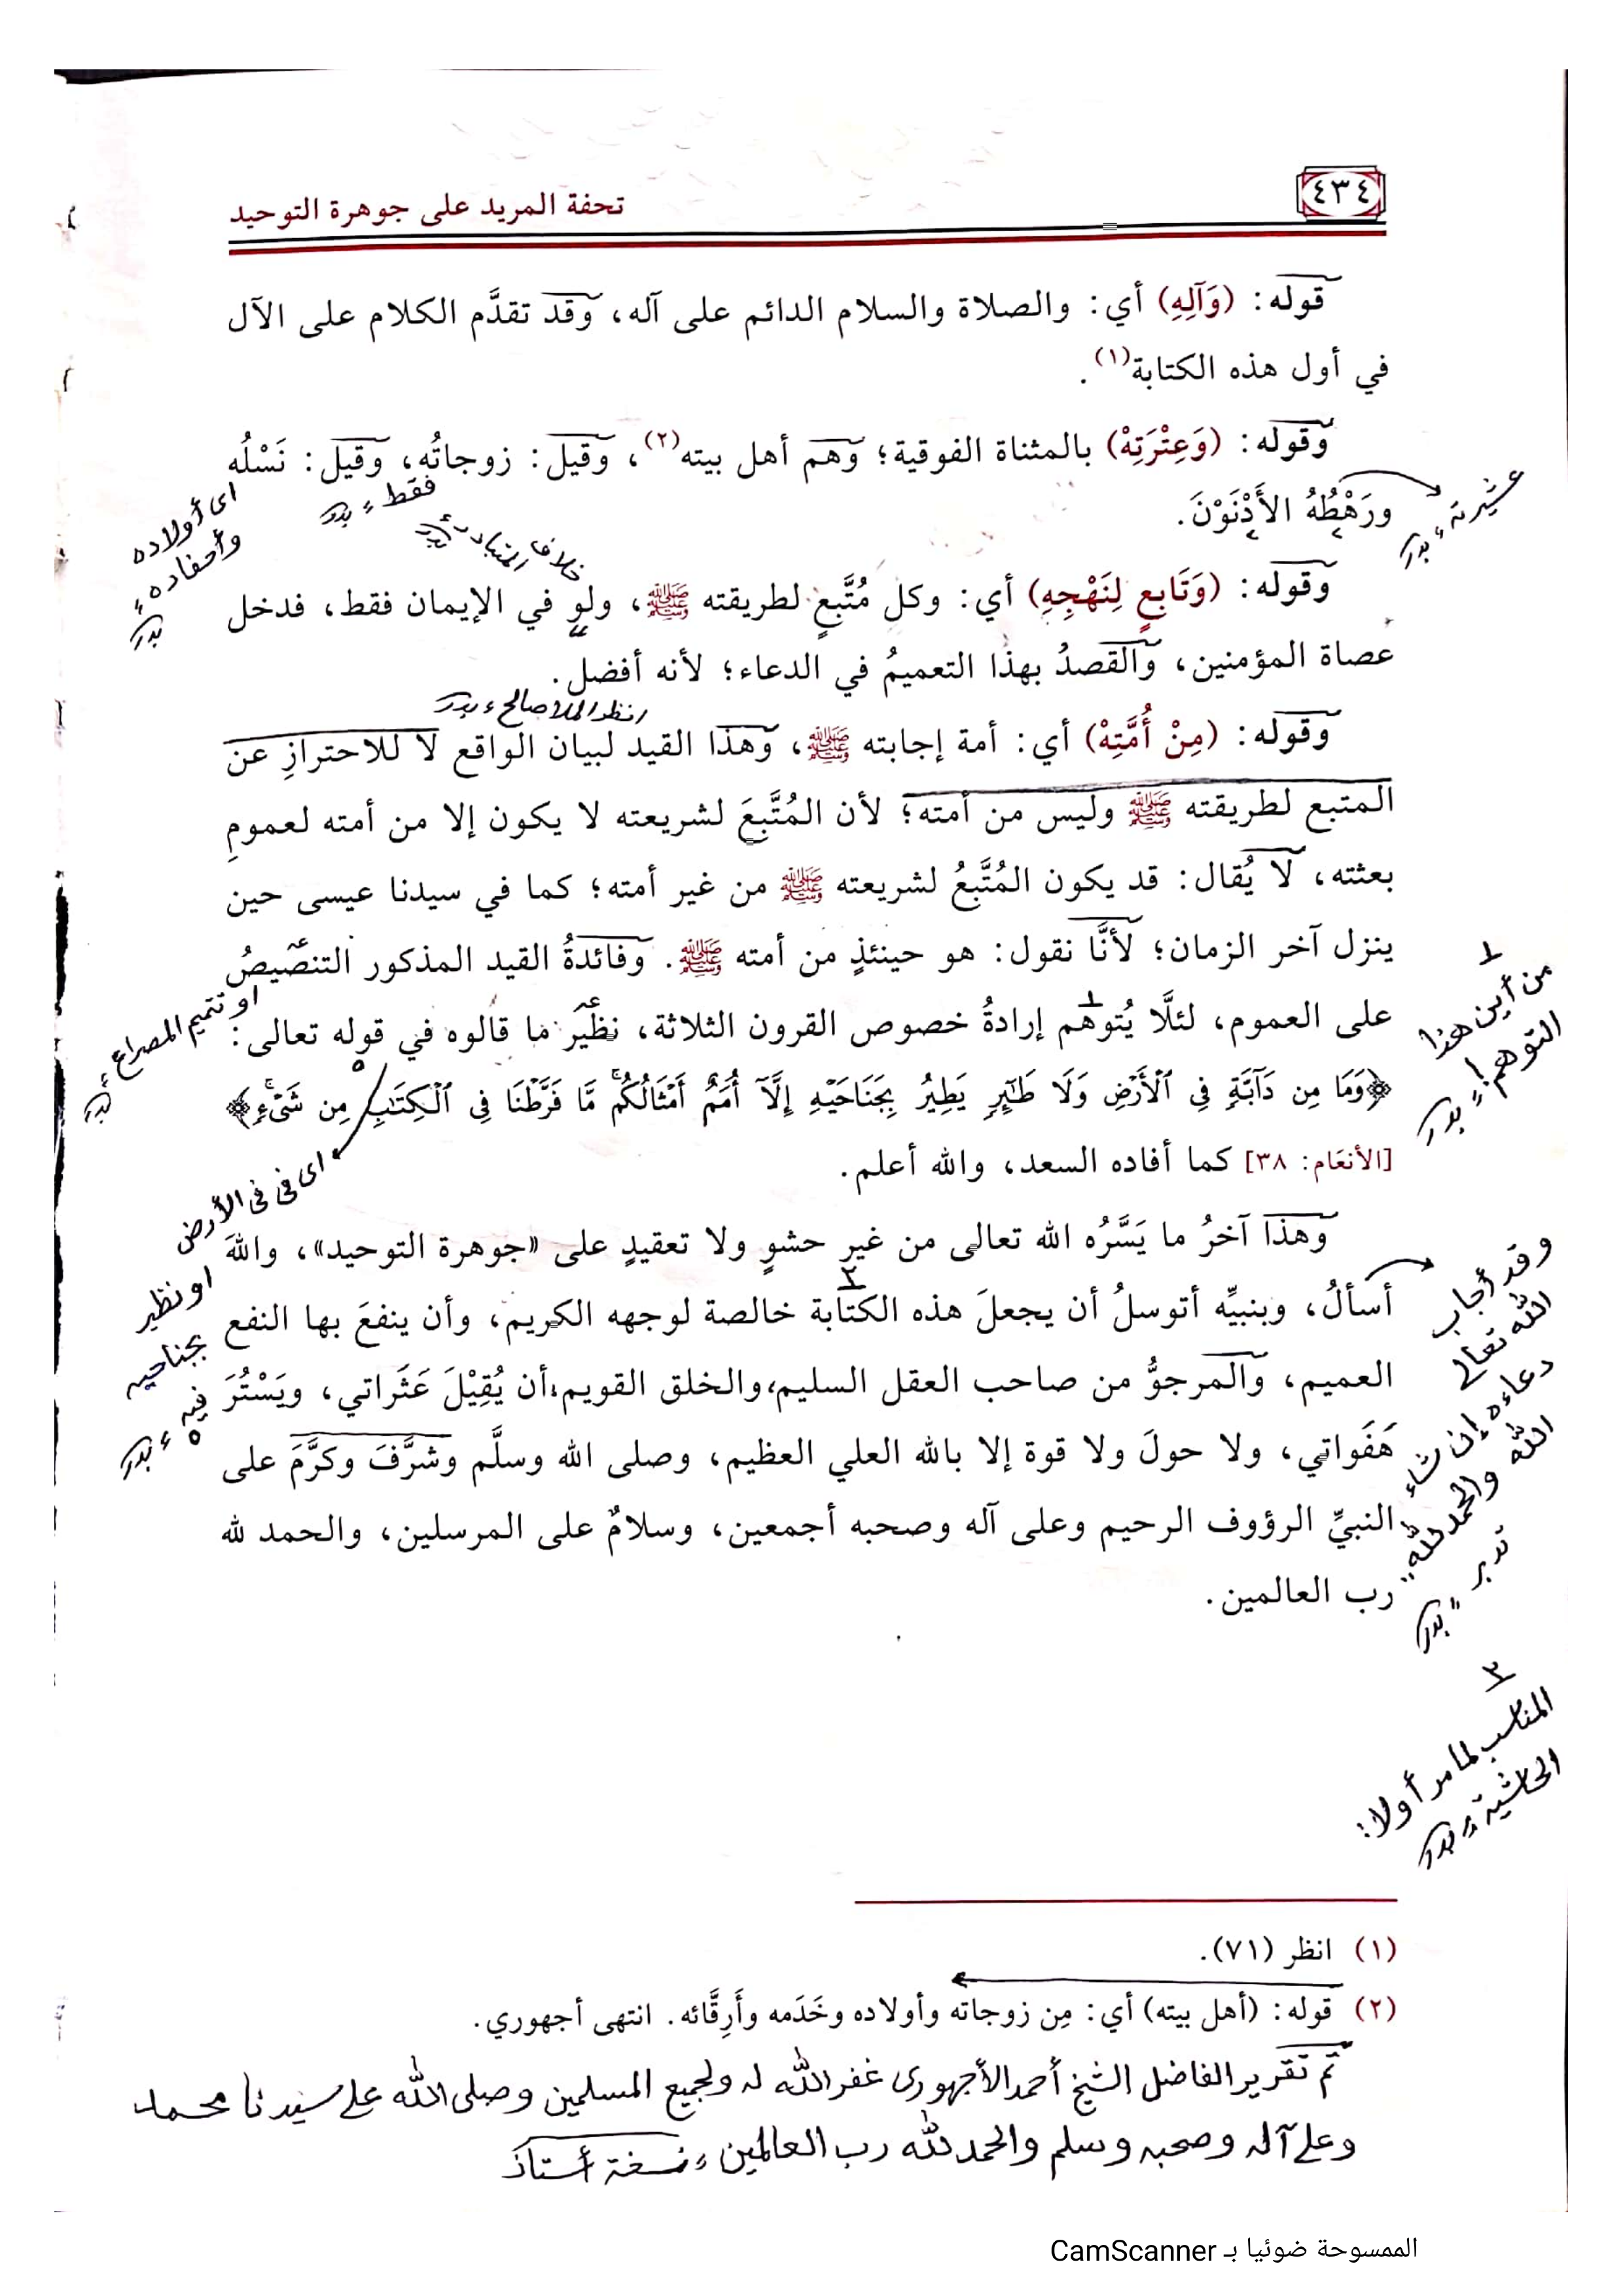 ٤٣٤
تحفة المريد على جوهرة التوحيد
قوله: (وَآلِهِ) أي: والصلاة والسلام الدائم على آله، وقد تقدَّم الكلام على الآل
في أول هذه الكتابة(١).
وقوله: (وَعِتْرَتِهْ) بالمثناة الفوقية؛ وهم أهل بيته(٢)، وقيل: زوجاتُه، وقيل: نَسْلُه
ورَهْطُهُ الأَدْنَوْنَ.
عشيرته، بدر
فقط، بدر
اى أولاده
وأحفاده،
بدر
خلاف المتبادر
وقوله: (وَتَابِعٍ لِنَهْجِهِ) أي: وكل مُتَّبِعٍ لطريقته ﷺ، ولو في الإيمان فقط، فدخل
عصاة المؤمنين، والقصدُ بهذا التعميمُ في الدعاء؛ لأنه أفضل.
انظر الملا صالح، بدر
وقوله: (مِنْ أُمَّتِهْ) أي: أمة إجابته ﷺ، وهذا القيد لبيان الواقع لا للاحترازِ عن
المتبع لطريقته ﷺ وليس من أمته؛ لأن المُتَّبِعَ لشريعته لا يكون إلا من أمته لعمومِ
بعثته، لا يُقال: قد يكون المُتَّبِعُ لشريعته ﷺ من غير أمته؛ كما في سيدنا عيسى حين
ينزل آخر الزمان؛ لأنَّا نقول: هو حينئذٍ من أمته ﷺ. وفائدةُ القيد المذكور التنصيصُ
على العموم، لئلَّا يُتوهم إرادةُ خصوص القرون الثلاثة، نظير ما قالوه في قوله تعالى:
﴿وَمَا مِن دَآبَّةٍ فِى ٱلْأَرْضِ وَلَا طَٰٓئِرٍ يَطِيرُ بِجَنَاحَيْهِ إِلَّآ أُمَمٌ أَمْثَالُكُم ۚ مَّا فَرَّطْنَا فِى ٱلْكِتَٰبِ مِن شَىْءٍ﴾
[الأنعَام: ٣٨] كما أفاده السعد، والله أعلم.
١
من أين هذا
التوهم! بدر
او تتميم المصراع، بدر
اى فى فى الأرض
او نظير
بجناحيه
فيه، بدر
وهذا آخرُ ما يَسَّرُه الله تعالى من غير حشوٍ ولا تعقيدٍ على «جوهرة التوحيد»، واللهَ
أسألُ، وبنبيِّه أتوسلُ أن يجعلَ هذه الكتابة خالصة لوجهه الكريم، وأن ينفعَ بها النفع
العميم، والمرجوُّ من صاحب العقل السليم، والخلق القويم، أن يُقِيْلَ عَثَراتي، ويَسْتُرَ
هَفَواتي، ولا حولَ ولا قوة إلا بالله العلي العظيم، وصلى الله وسلَّم وشرَّفَ وكرَّمَ على
النبيِّ الرؤوف الرحيم وعلى آله وصحبه أجمعين، وسلامٌ على المرسلين، والحمد لله
رب العالمين.
وقد أجاب
الله تعالى
دعاءه إن شاء
الله والحمد لله
تدبر، بدر
٢
المناسب لما مر أولا:
الحاشية، بدر
(١) انظر (٧١).
(٢) قوله: (أهل بيته) أي: مِن زوجاته وأولاده وخَدَمه وأَرِقَّائه. انتهى أجهوري.
تم تقرير الفاضل الشيخ أحمد الأجهورى غفر الله له ولجميع المسلمين وصلى الله على سيدنا محمد
وعلى آله وصحبه وسلم والحمد لله رب العالمين، نسخة أستاذ
الممسوحة ضوئيا بـ CamScanner